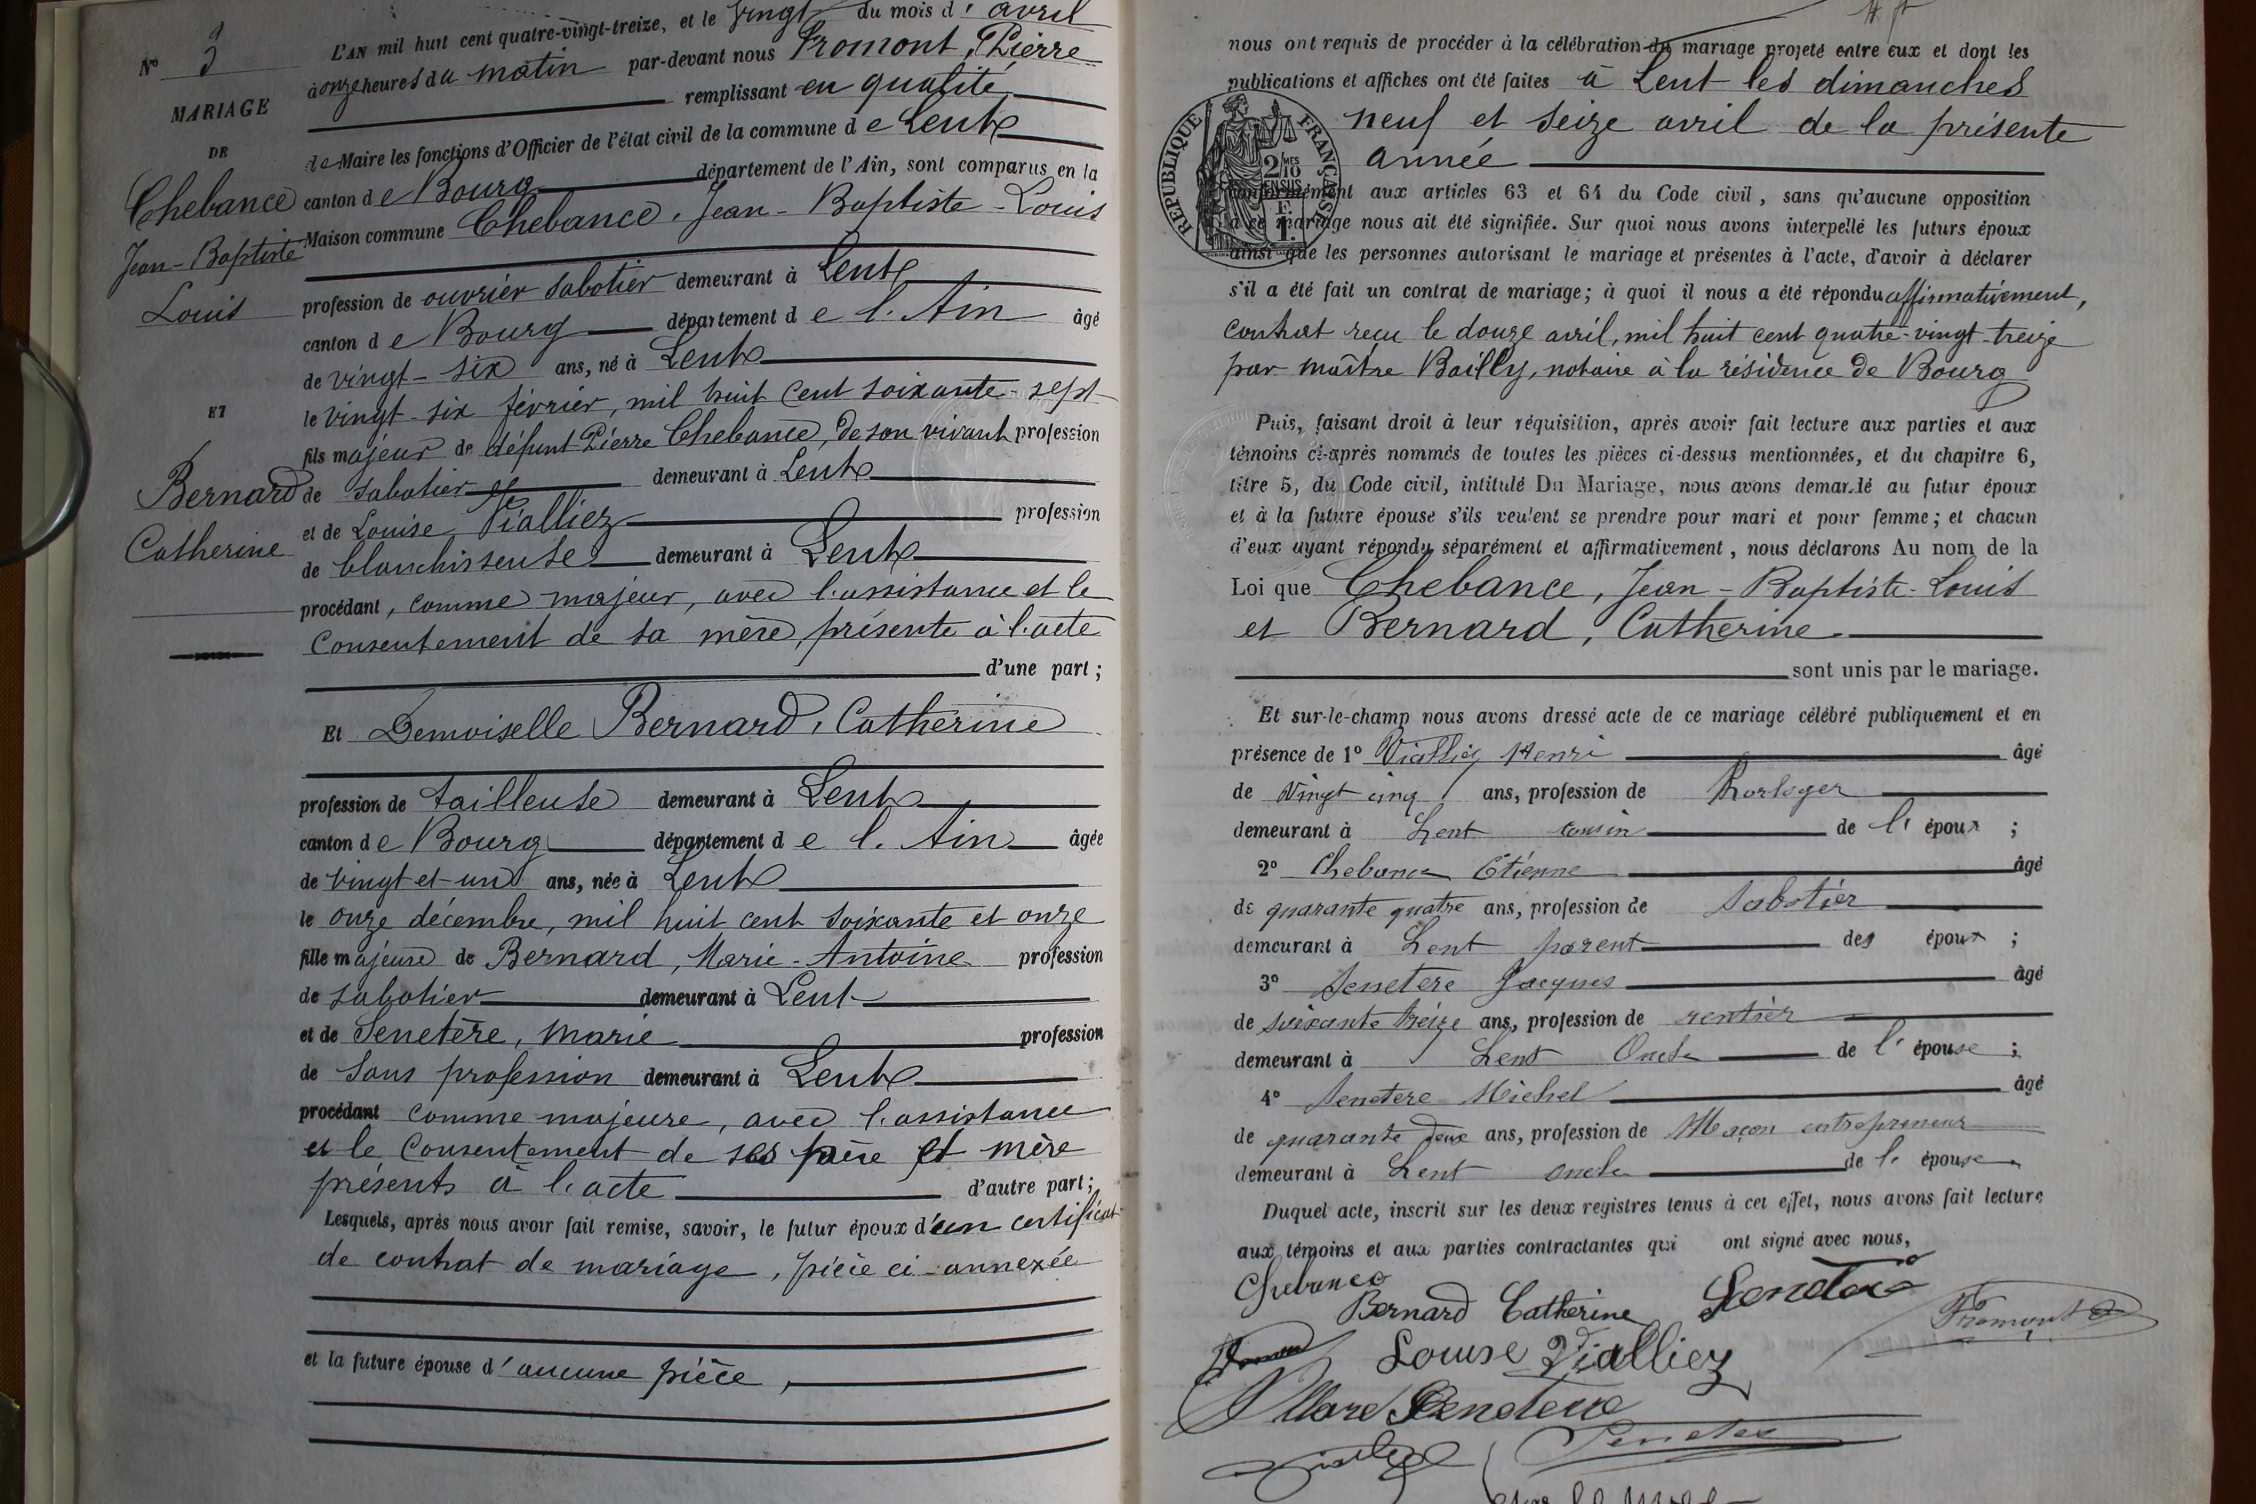 N° 3
MARIAGE
DE
Chebance
Jean-Baptiste
Louis
ET
Bernard
Catherine
L'AN mil huit cent quatre-vingt-treize, et le vingt du mois d'avril
à onze heures du matin par-devant nous Fromont, Pierre
remplissant en qualité
de Maire les fonctions d'Officier de l'état civil de la commune de Lent
canton de Bourg département de l'Ain, sont comparus en la
Maison commune Chebance, Jean-Baptiste-Louis
profession de ouvrier sabotier demeurant à Lent
canton de Bourg département de l'Ain âgé
de vingt-six ans, né à Lent
le vingt-six février, mil huit cent soixante-sept
fils majeur de défunt Pierre Chebance, de son vivant profession
de sabotier demeurant à Lent
et de Louise Vialliez profession
de blanchisseuse demeurant à Lent
procédant, comme majeur, avec l'assistance et le
consentement de sa mère, présente à l'acte
d'une part;
Et Demoiselle Bernard, Catherine
profession de tailleuse demeurant à Lent
canton de Bourg département de l'Ain âgée
de vingt-et-un ans, née à Lent
le onze décembre, mil huit cent soixante et onze
fille majeure de Bernard, Marie-Antoine profession
de sabotier demeurant à Lent
et de Senetère, Marie profession
de sans profession demeurant à Lent
procédant comme majeure, avec l'assistance
et le consentement de ses père et mère
présents à l'acte d'autre part;
Lesquels, après nous avoir fait remise, savoir, le futur époux d'un certificat
de contrat de mariage, pièce ci-annexée
et la future épouse d'aucune pièce,
nous ont requis de procéder à la célébration du mariage projeté entre eux et dont les
publications et affiches ont été faites à Lent les dimanches
neuf et seize avril de la présente
année
RÉPUBLIQUE FRANÇAISE
2/10 EN SUS
1 F.
conformément aux articles 63 et 64 du Code civil, sans qu'aucune opposition
à ce mariage nous ait été signifiée. Sur quoi nous avons interpellé les futurs époux
ainsi que les personnes autorisant le mariage et présentes à l'acte, d'avoir à déclarer
s'il a été fait un contrat de mariage; à quoi il nous a été répondu affirmativement,
contrat reçu le douze avril, mil huit cent quatre-vingt-treize
par maître Bailly, notaire à la résidence de Bourg
Puis, faisant droit à leur réquisition, après avoir fait lecture aux parties et aux
témoins ci-après nommés de toutes les pièces ci-dessus mentionnées, et du chapitre 6,
titre 5, du Code civil, intitulé Du Mariage, nous avons demandé au futur époux
et à la future épouse s'ils veulent se prendre pour mari et pour femme; et chacun
d'eux ayant répondu séparément et affirmativement, nous déclarons Au nom de la
Loi que Chebance, Jean-Baptiste-Louis
et Bernard, Catherine
sont unis par le mariage.
Et sur-le-champ nous avons dressé acte de ce mariage célébré publiquement et en
présence de 1° Vialliez Henri âgé
de vingt cinq ans, profession de horloger
demeurant à Lent cousin de l'époux;
2° Chebance Etienne âgé
de quarante quatre ans, profession de sabotier
demeurant à Lent parent des époux;
3° Senetère Jacques âgé
de soixante treize ans, profession de rentier
demeurant à Lent Oncle de l'épouse;
4° Senetere Michel âgé
de quarante deux ans, profession de Maçon entrepreneur
demeurant à Lent oncle de l'épouse
Duquel acte, inscrit sur les deux registres tenus à cet effet, nous avons fait lecture
aux témoins et aux parties contractantes qui ont signé avec nous,
Chebance
Bernard Catherine
Fromont
Louise Vialliez